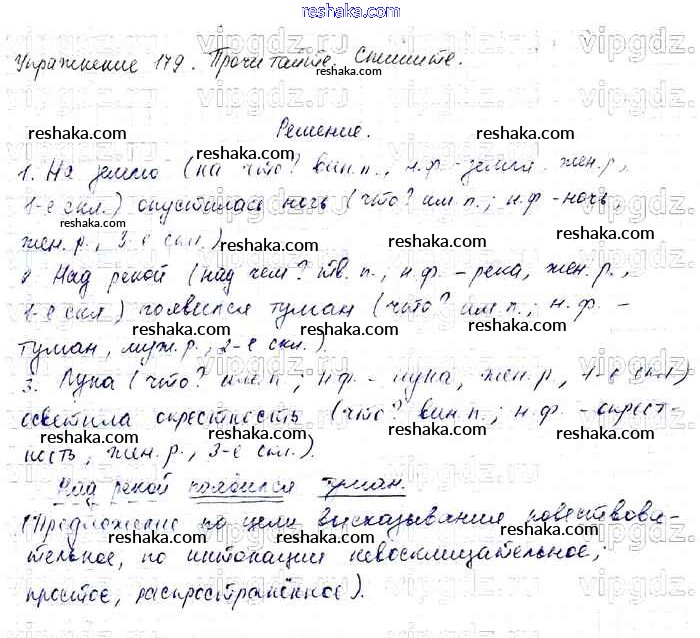 Упражнение 179. Прочитайте. Спишите.
Решение.
1. На землю (на что? вин.п., н.ф. - земля. жен.р.,
1-е скл.) опустилась ночь (что? им.п.; н.ф - ночь,
жен.р., 3-е скл.)
2 Над рекой (над чем? тв.п., н.ф. - река, жен.р.,
1-е скл) появился туман (что? им.п.; н.ф. -
туман, муж.р., 2-е скл.).
3. Луна (что? им.п.; н.ф. - луна, жен.р., 1-е скл)
осветила окрестность (что? вин.п.; н.ф. - окрест
ность, жен.р., 3-е скл.).
Над рекой появился туман.
(Предложение по цели высказывания повествова-
тельное, по интонации невосклицательное;
простое, распространённое).
reshaka.com
vipgdz.com